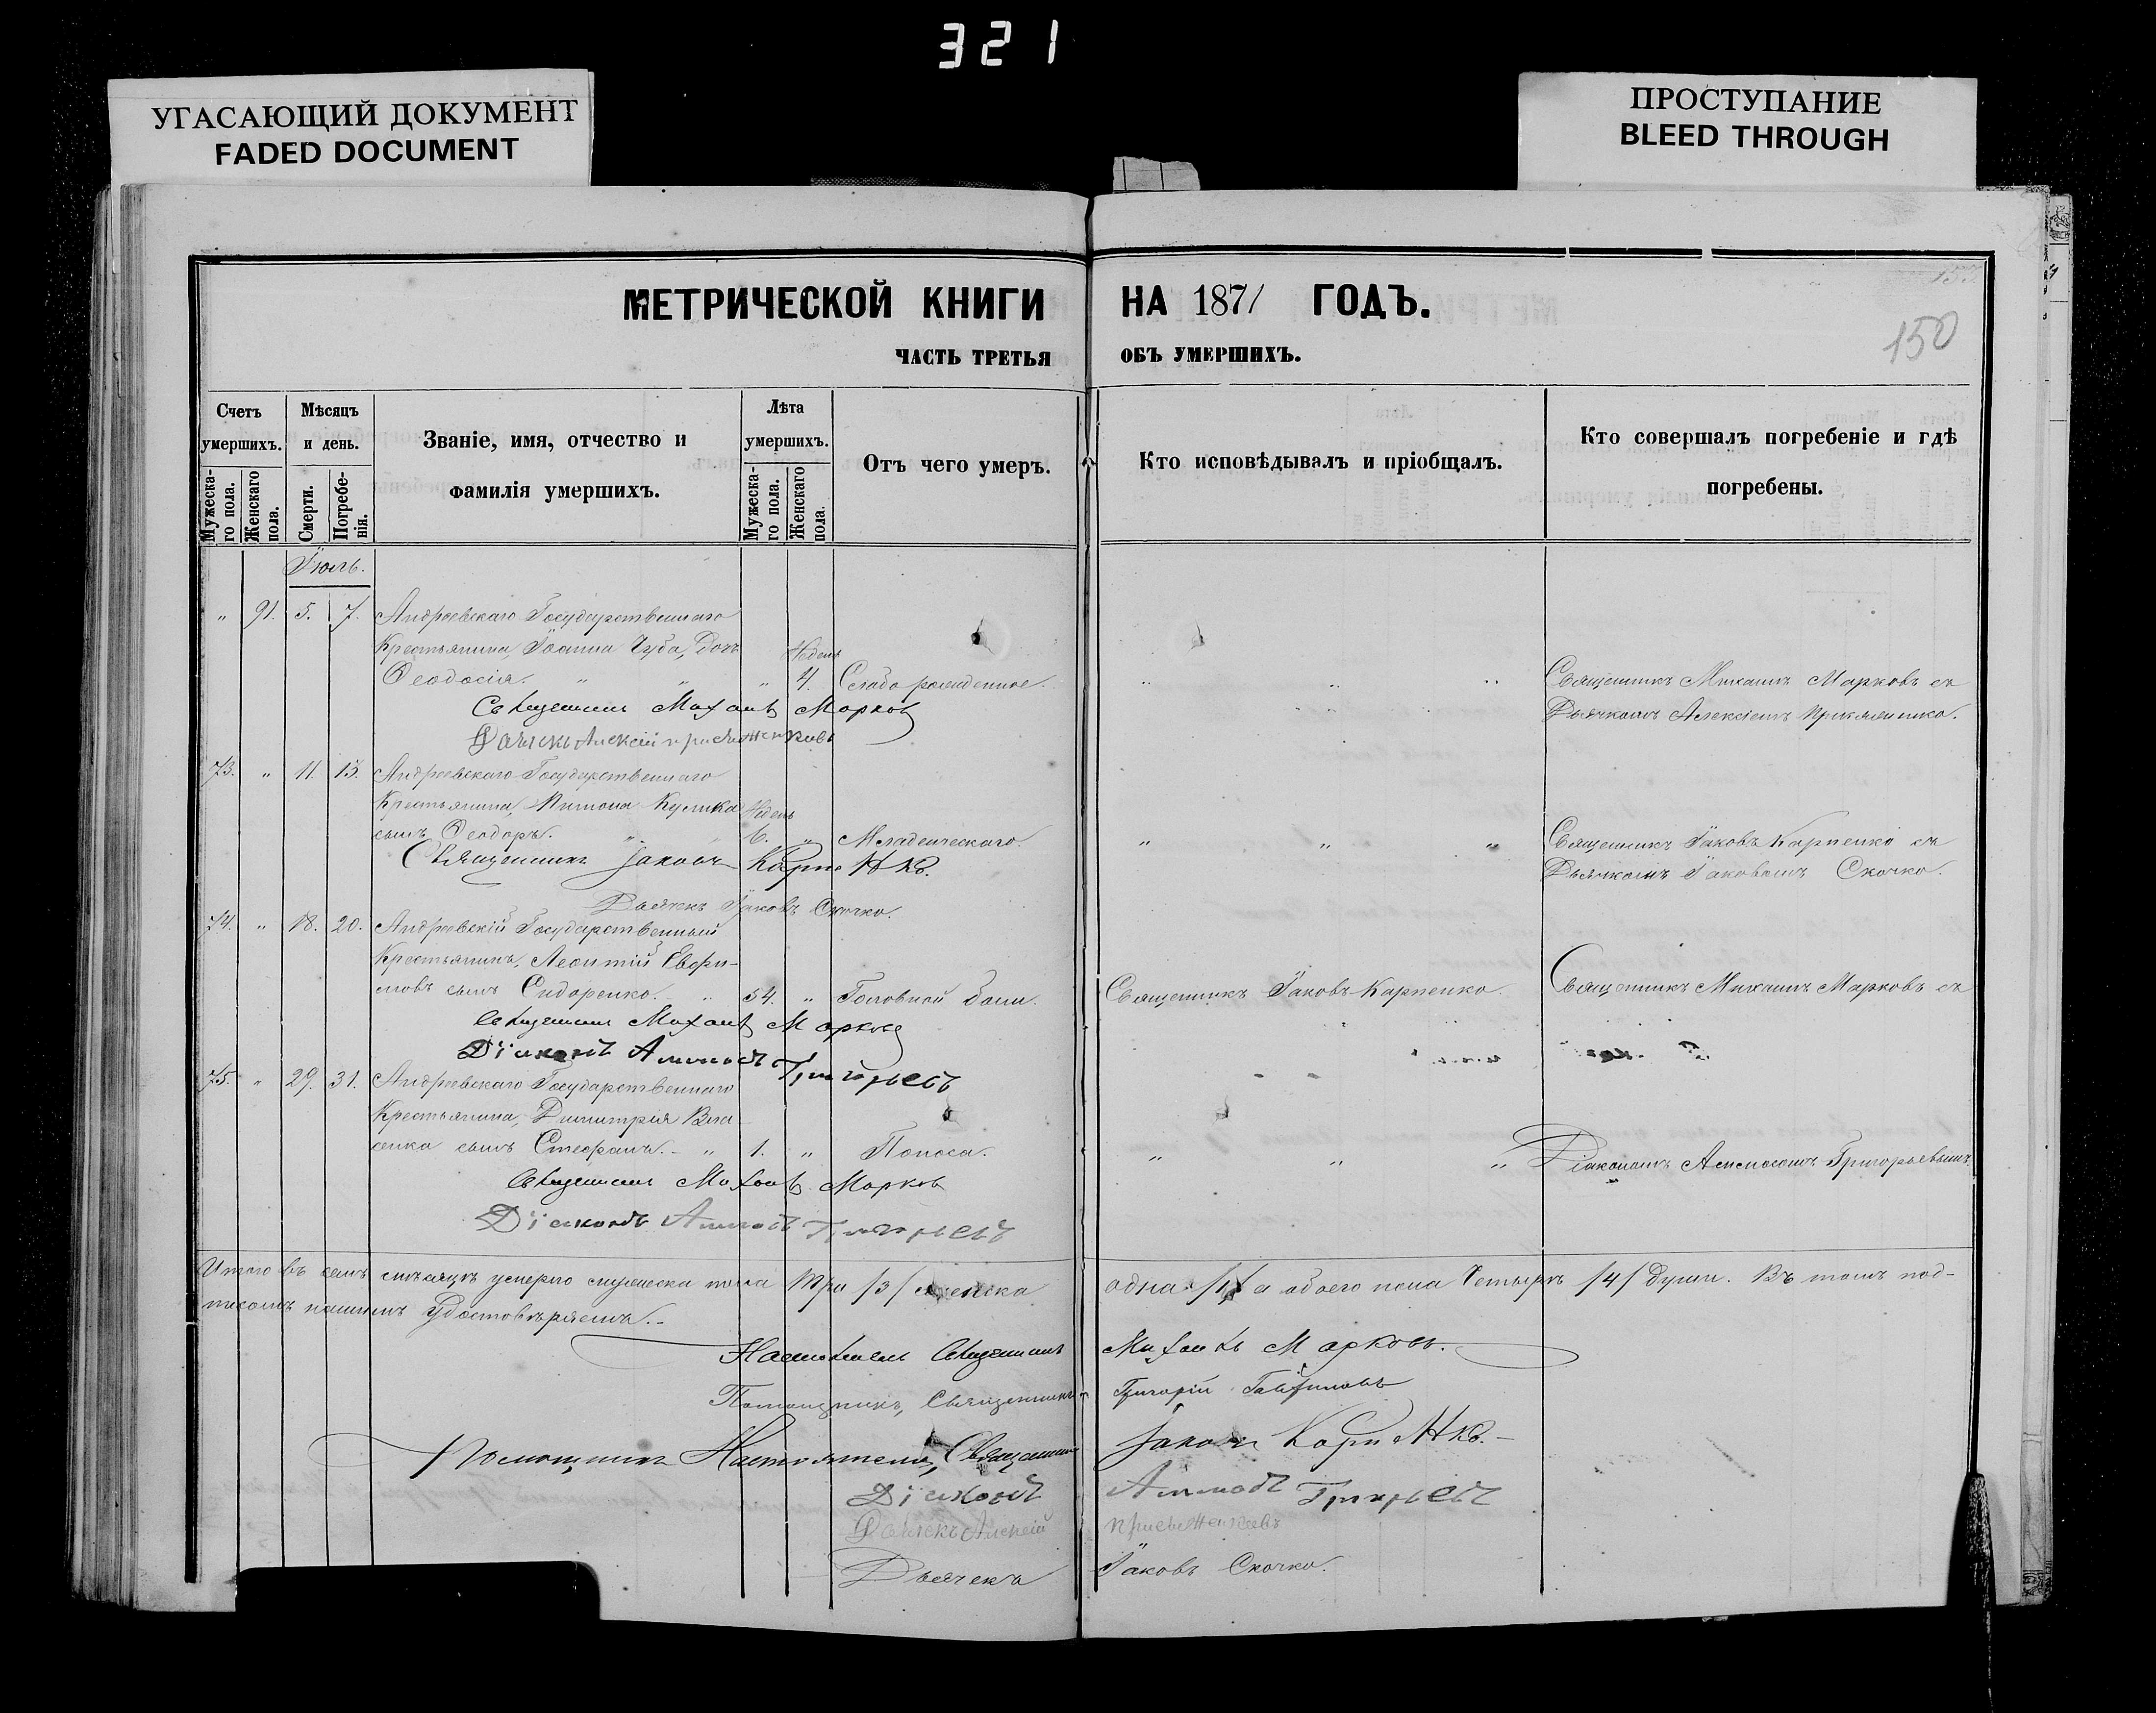 321
УГАСАЮЩИЙ ДОКУМЕНТ
FADED DOCUMENT
ПРОСТУПАНИЕ
BLEED THROUGH
МЕТРИЧЕСКОЙ КНИГИ НА 1871 ГОДЪ.
150
ЧАСТЬ ТРЕТЬЯ ОБЪ УМЕРШИХЪ.
Счетъ умершихъ.
Мужеска-го пола.
Женскаго пола.
Мѣсяцъ и день.
Смерти.
Погребе-нія.
Званіе, имя, отчество и
фамилія умершихъ.
Лѣта умершихъ.
Мужеска-го пола.
Женскаго пола.
Отъ чего умеръ.
Кто исповѣдывалъ и пріобщалъ.
Кто совершалъ погребеніе и гдѣ
погребены.
Іюль.
" 91. 5. 7. Андреевскаго Государственнаго
Крестьянина, Іоанна Чуба, дочь Недель
Ѳеодосія. " " " 4. Слабо рожденное. " " " Священникъ Михаилъ Марковъ съ
Священникъ Михаилъ Марковъ Дьячкомъ Алексіемъ
Дьячекъ Алексій
73. " 11. 13. Андреевскаго Государственнаго
Крестьянина, Кулика Недель
сынъ Ѳеодоръ. " 6. " Младенческаго " " " Священникъ Іаковъ Карпенко съ
Священникъ Іаковъ Карпенко. Дьячкомъ Іаковомъ Скочко.
Дьячекъ Іаковъ Скочко.
74. " 18. 20. Андреевскій Государственный
Крестьянинъ, Леонтій Евфи-
мовъ сынъ Сидоренко. " 54. " Головной боли. Священникъ Іаковъ Карпенко. Священникъ Михаилъ Марковъ съ
Священникъ Михаилъ Марковъ
Діаконъ Григорьевъ
75. " 29. 31. Андреевскаго Государственнаго
Крестьянина, Димитрія Вла-
сенка сынъ Стефанъ. " 1. " Поноса. " " " Діакономъ Григорьевымъ
Священникъ Михаилъ Марковъ
Діаконъ Григорьевъ
Итого въ семъ мѣсяцѣ умерло мужеска пола три /3/ женска одна /1/ а обоего пола четыре /4/ души. Въ томъ под-
писомъ нашимъ удостовѣряемъ.
Настоятель Священникъ Михаилъ Марковъ.
Помощникъ, Священникъ Григорій
Помощникъ Настоятеля, Священникъ Іаковъ Карпенко.
Діаконъ Григорьевъ
Дьячекъ Алексій
Дьячекъ Іаковъ Скочко.